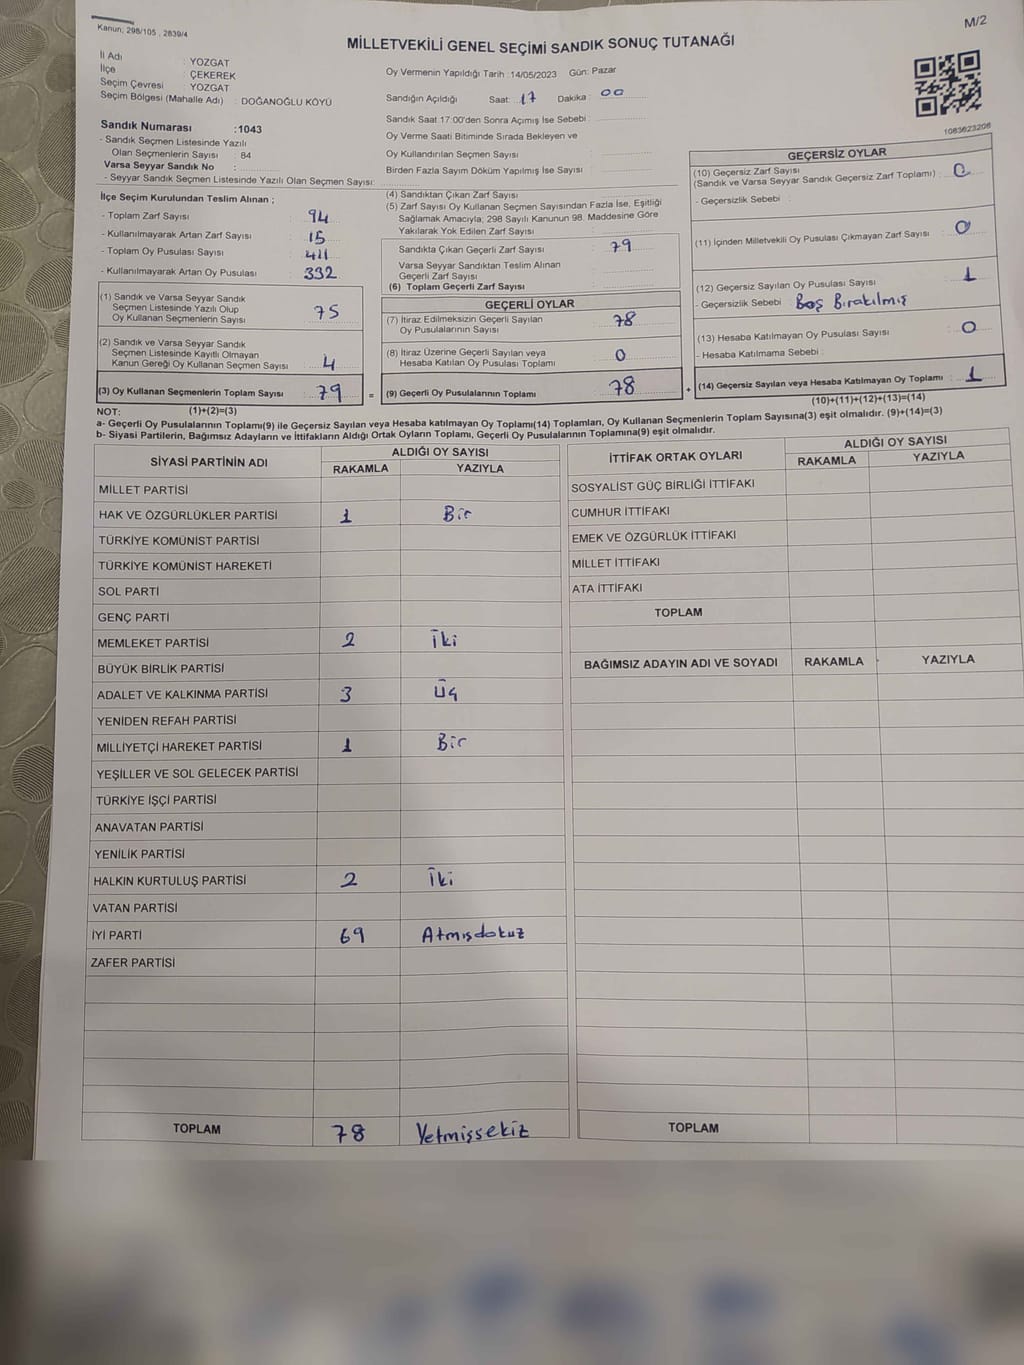 Kanun; 298/105 , 2839/4
M/2
MİLLETVEKİLİ GENEL SEÇİMİ SANDIK SONUÇ TUTANAĞI
İl Adı : YOZGAT
İlçe : ÇEKEREK
Seçim Çevresi : YOZGAT
Seçim Bölgesi (Mahalle Adı) : DOĞANOĞLU KÖYÜ
Sandık Numarası :1043
- Sandık Seçmen Listesinde Yazılı
Olan Seçmenlerin Sayısı : 84
Varsa Seyyar Sandık No :
- Seyyar Sandık Seçmen Listesinde Yazılı Olan Seçmen Sayısı:
Oy Vermenin Yapıldığı Tarih :14/05/2023 Gün: Pazar
Sandığın Açıldığı Saat: 17 Dakika : 00
Sandık Saat 17:00'den Sonra Açımış İse Sebebi :
Oy Verme Saati Bitiminde Sırada Bekleyen ve
Oy Kullandırılan Seçmen Sayısı :
Birden Fazla Sayım Döküm Yapılmış İse Sayısı :
1083623206
İlçe Seçim Kurulundan Teslim Alınan ;
- Toplam Zarf Sayısı : 94
- Kullanılmayarak Artan Zarf Sayısı : 15
- Toplam Oy Pusulası Sayısı : 411
- Kullanılmayarak Artan Oy Pusulası : 332
(1) Sandık ve Varsa Seyyar Sandık
Seçmen Listesinde Yazılı Olup
Oy Kullanan Seçmenlerin Sayısı : 75
(2) Sandık ve Varsa Seyyar Sandık
Seçmen Listesinde Kayıtlı Olmayan
Kanun Gereği Oy Kullanan Seçmen Sayısı : 4
(3) Oy Kullanan Seçmenlerin Toplam Sayısı : 79
(4) Sandıktan Çıkan Zarf Sayısı :
(5) Zarf Sayısı Oy Kullanan Seçmen Sayısından Fazla İse, Eşitliği
Sağlamak Amacıyla; 298 Sayılı Kanunun 98. Maddesine Göre
Yakılarak Yok Edilen Zarf Sayısı :
Sandıkta Çıkan Geçerli Zarf Sayısı : 79
Varsa Seyyar Sandıktan Teslim Alınan
Geçerli Zarf Sayısı :
(6) Toplam Geçerli Zarf Sayısı :
GEÇERLİ OYLAR
(7) İtiraz Edilmeksizin Geçerli Sayılan
Oy Pusulalarının Sayısı : 78
(8) İtiraz Üzerine Geçerli Sayılan veya
Hesaba Katılan Oy Pusulası Toplamı : 0
= (9) Geçerli Oy Pusulalarının Toplamı : 78
GEÇERSİZ OYLAR
(10) Geçersiz Zarf Sayısı
(Sandık ve Varsa Seyyar Sandık Geçersiz Zarf Toplamı) : 0
- Geçersizlik Sebebi :
(11) İçinden Milletvekili Oy Pusulası Çıkmayan Zarf Sayısı : 0
(12) Geçersiz Sayılan Oy Pusulası Sayısı : 1
- Geçersizlik Sebebi : Boş Bırakılmış
(13) Hesaba Katılmayan Oy Pusulası Sayısı : 0
- Hesaba Katılmama Sebebi :
+ (14) Geçersiz Sayılan veya Hesaba Katılmayan Oy Toplamı : 1
NOT: (1)+(2)=(3)
(10)+(11)+(12)+(13)=(14)
a- Geçerli Oy Pusulalarının Toplamı(9) ile Geçersiz Sayılan veya Hesaba katılmayan Oy Toplamı(14) Toplamları, Oy Kullanan Seçmenlerin Toplam Sayısına(3) eşit olmalıdır. (9)+(14)=(3)
b- Siyasi Partilerin, Bağımsız Adayların ve İttifakların Aldığı Ortak Oyların Toplamı, Geçerli Oy Pusulalarının Toplamına(9) eşit olmalıdır.
SİYASİ PARTİNİN ADI ALDIĞI OY SAYISI
RAKAMLA YAZIYLA
MİLLET PARTİSİ
HAK VE ÖZGÜRLÜKLER PARTİSİ 1 Bir
TÜRKİYE KOMÜNİST PARTİSİ
TÜRKİYE KOMÜNİST HAREKETİ
SOL PARTİ
GENÇ PARTİ
MEMLEKET PARTİSİ 2 İki
BÜYÜK BİRLİK PARTİSİ
ADALET VE KALKINMA PARTİSİ 3 Üç
YENİDEN REFAH PARTİSİ
MİLLİYETÇİ HAREKET PARTİSİ 1 Bir
YEŞİLLER VE SOL GELECEK PARTİSİ
TÜRKİYE İŞÇİ PARTİSİ
ANAVATAN PARTİSİ
YENİLİK PARTİSİ
HALKIN KURTULUŞ PARTİSİ 2 İki
VATAN PARTİSİ
İYİ PARTİ 69 Atmışdokuz
ZAFER PARTİSİ
TOPLAM 78 Yetmişsekiz
İTTİFAK ORTAK OYLARI ALDIĞI OY SAYISI
RAKAMLA YAZIYLA
SOSYALİST GÜÇ BİRLİĞİ İTTİFAKI
CUMHUR İTTİFAKI
EMEK VE ÖZGÜRLÜK İTTİFAKI
MİLLET İTTİFAKI
ATA İTTİFAKI
TOPLAM
BAĞIMSIZ ADAYIN ADI VE SOYADI RAKAMLA YAZIYLA
TOPLAM